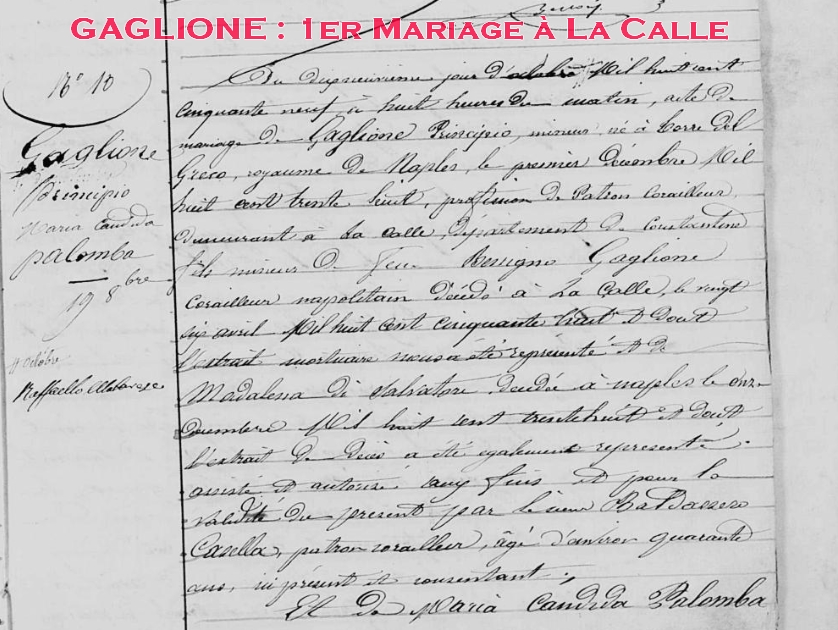 GAGLIONE : 1ER MARIAGE À LA CALLE
N° 10
Gaglione
Principio
Maria Candida
palomba
19 8bre
Raffaello
Du dixneuvieme jour d'octobre Mil huit cent
cinquante neuf à huit heures du matin, acte de
mariage de Gaglione Principio, mineur né à torre del
Greco, royaume de Naples, le premier décembre Mil
huit cent trente huit, profession de Patron Corailleur,
demeurant à La Calle, département de Constantine
fils mineur De feu Benigno Gaglione
Corailleur napolitain décédé à La Calle, le vingt
six avril Mil huit cent cinquante huit Et dont
l'extrait mortuaire nous a été représenté Et de
Madalena di Salvatore, décédée à naples le onze
Decembre Mil huit cent trente huit et dont
l'extrait de décès a été également représenté.
assisté et autorisé aux fins et pour la
validité du présent par le sieur Baldassero
Casella, patron corailleur, âgé d'environ quarante
ans, ici présent et consentant ;
Et de Maria Candida Palomba